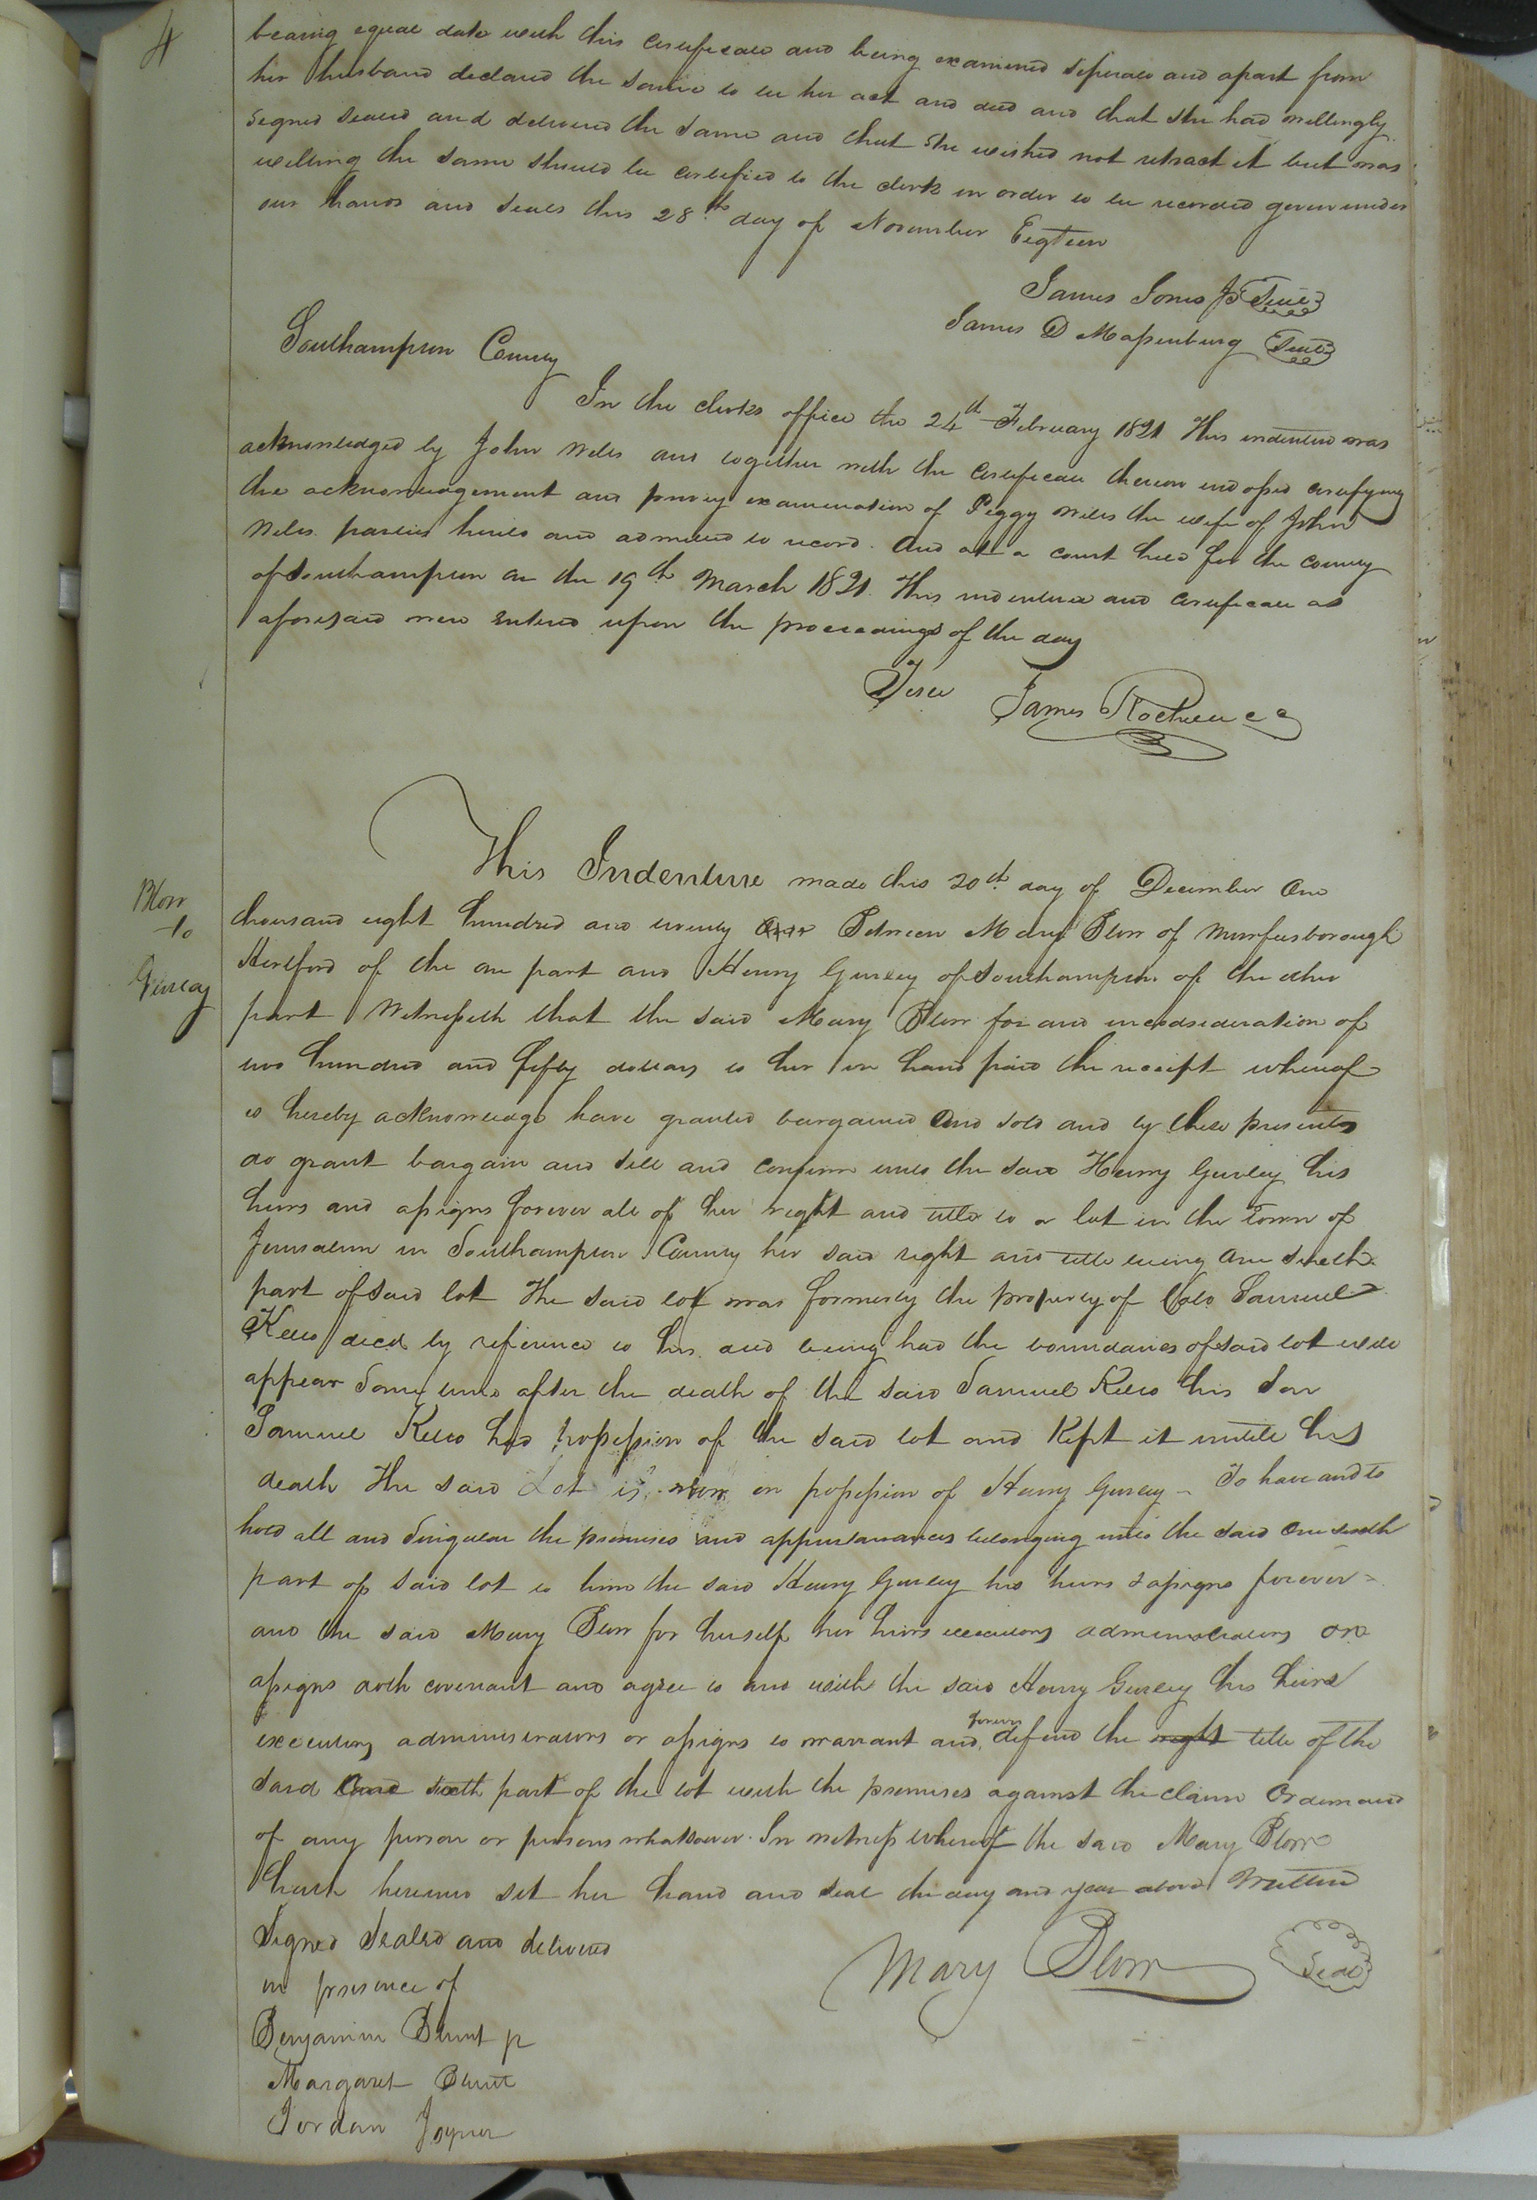 4
bearing equal date with this certificate and being examined seperate and apart from
her husband declared the same to be her act and deed and that she had willingly
signed sealed and delivered the same and that she wished not retract it but was
willing the same should be certified to the clerk in order to be recorded given under
our hands and seals this 28th day of November Eigteen
James Jones Jr Seal
James D Massenburg Seal
Southampton County
In the clerks office the 24th February 1821 This indenture was
acknowledged by John Wills and together with the certificate thereon indorsed certifying
the acknowledgement and privy examination of Peggy Wills the wife of John
Wills parties hereto and admitted to record. And at a court held for the county
of Southampton on the 19th March 1821. This indenture and certificate as
aforesaid were entered upon the proceedings of the day
Teste James Rochelle cc
Blow
to
Gurley
This Indenture made this 20th day of December One
thousand eight hundred and twenty Between Mary Blow of Murfeesborough
Hertford of the one part and Henry Gurley of Southampton of the other
part Witnesseth that the said Mary Blow for and in considideration of
two hundred and fifty dollars to her in hand paid the receipt whereof
is hereby acknowledge have granted bargained and sold and by these presents
do grant bargain and sell and confirm unto the said Henry Gurley his
heirs and assigns forever all of her right and title to a lot in the Town of
Jerusalem in Southampton County her said right and title being one sixth
part of said lot The said lot was formerly the property of Colo Samuel
Kello decd by reference to his deed being had the boundaries of said lot will
appear Some time after the death of the said Samuel Kello his Son
Samuel Kello had possession of the said lot and Kept it untill his
death The said Lot is now in possession of Henry Gurley - To have and to
hold all and Singular the premises and appurtenances belonging unto the said One sixth
part of said lot to him the said Henry Gurley his heirs & assigns forever -
and the said Mary Blow for herself her heirs executors administrators or
assigns doth covenant and agree to and with the said Henry Gurley his heirs
executors administrators or assigns to warrant and forever defend the right title of the
said One sixth part of the lot with the premises against the claim Or demand
of any person or persons whatsoever. In witness whereof the said Mary Blow
hath hereunto set her hand and seal the day and year above Written
Signed Sealed and delivered
in presence of
Mary Blow Seal
Benjamin Blunt jr
Margaret Blunt
Jordan Joyner